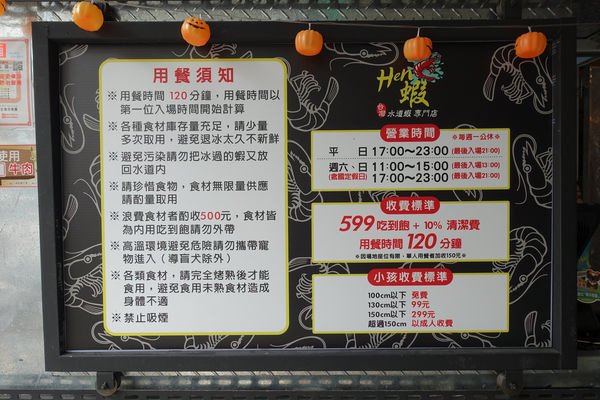 用餐須知
※用餐時間 120分鐘，用餐時間以
第一位入場時間開始計算
※各種食材庫存量充足，請少量
多次取用，避免退冰太久不新鮮
※避免污染請勿把冰過的蝦又放
回水道內
※請珍惜食物，食材無限量供應
請酌量取用
※浪費食材者酌收500元，食材皆
為內用吃到飽請勿外帶
※高溫環境避免危險請勿攜帶寵
物進入（導盲犬除外）
※各類食材，請完全烤熟後才能
食用，避免食用未熟食材造成
身體不適
※禁止吸煙
Hen
蝦
台灣 水道蝦 專門店
營業時間 ※每週一公休※
平 日 17:00～23:00 (最後入場21:00)
週六、日 11:00～15:00 (最後入場13:00)
(連國定假日) 17:00～23:00 (最後入場21:00)
收費標準
599吃到飽 + 10% 清潔費
用餐時間 120 分鐘
※因場地座位有限，單人用餐者加收150元※
小孩收費標準
100cm以下 免費
130cm以下 99元
150cm以下 299元
超過150cm 以成人收費
使用
牛肉